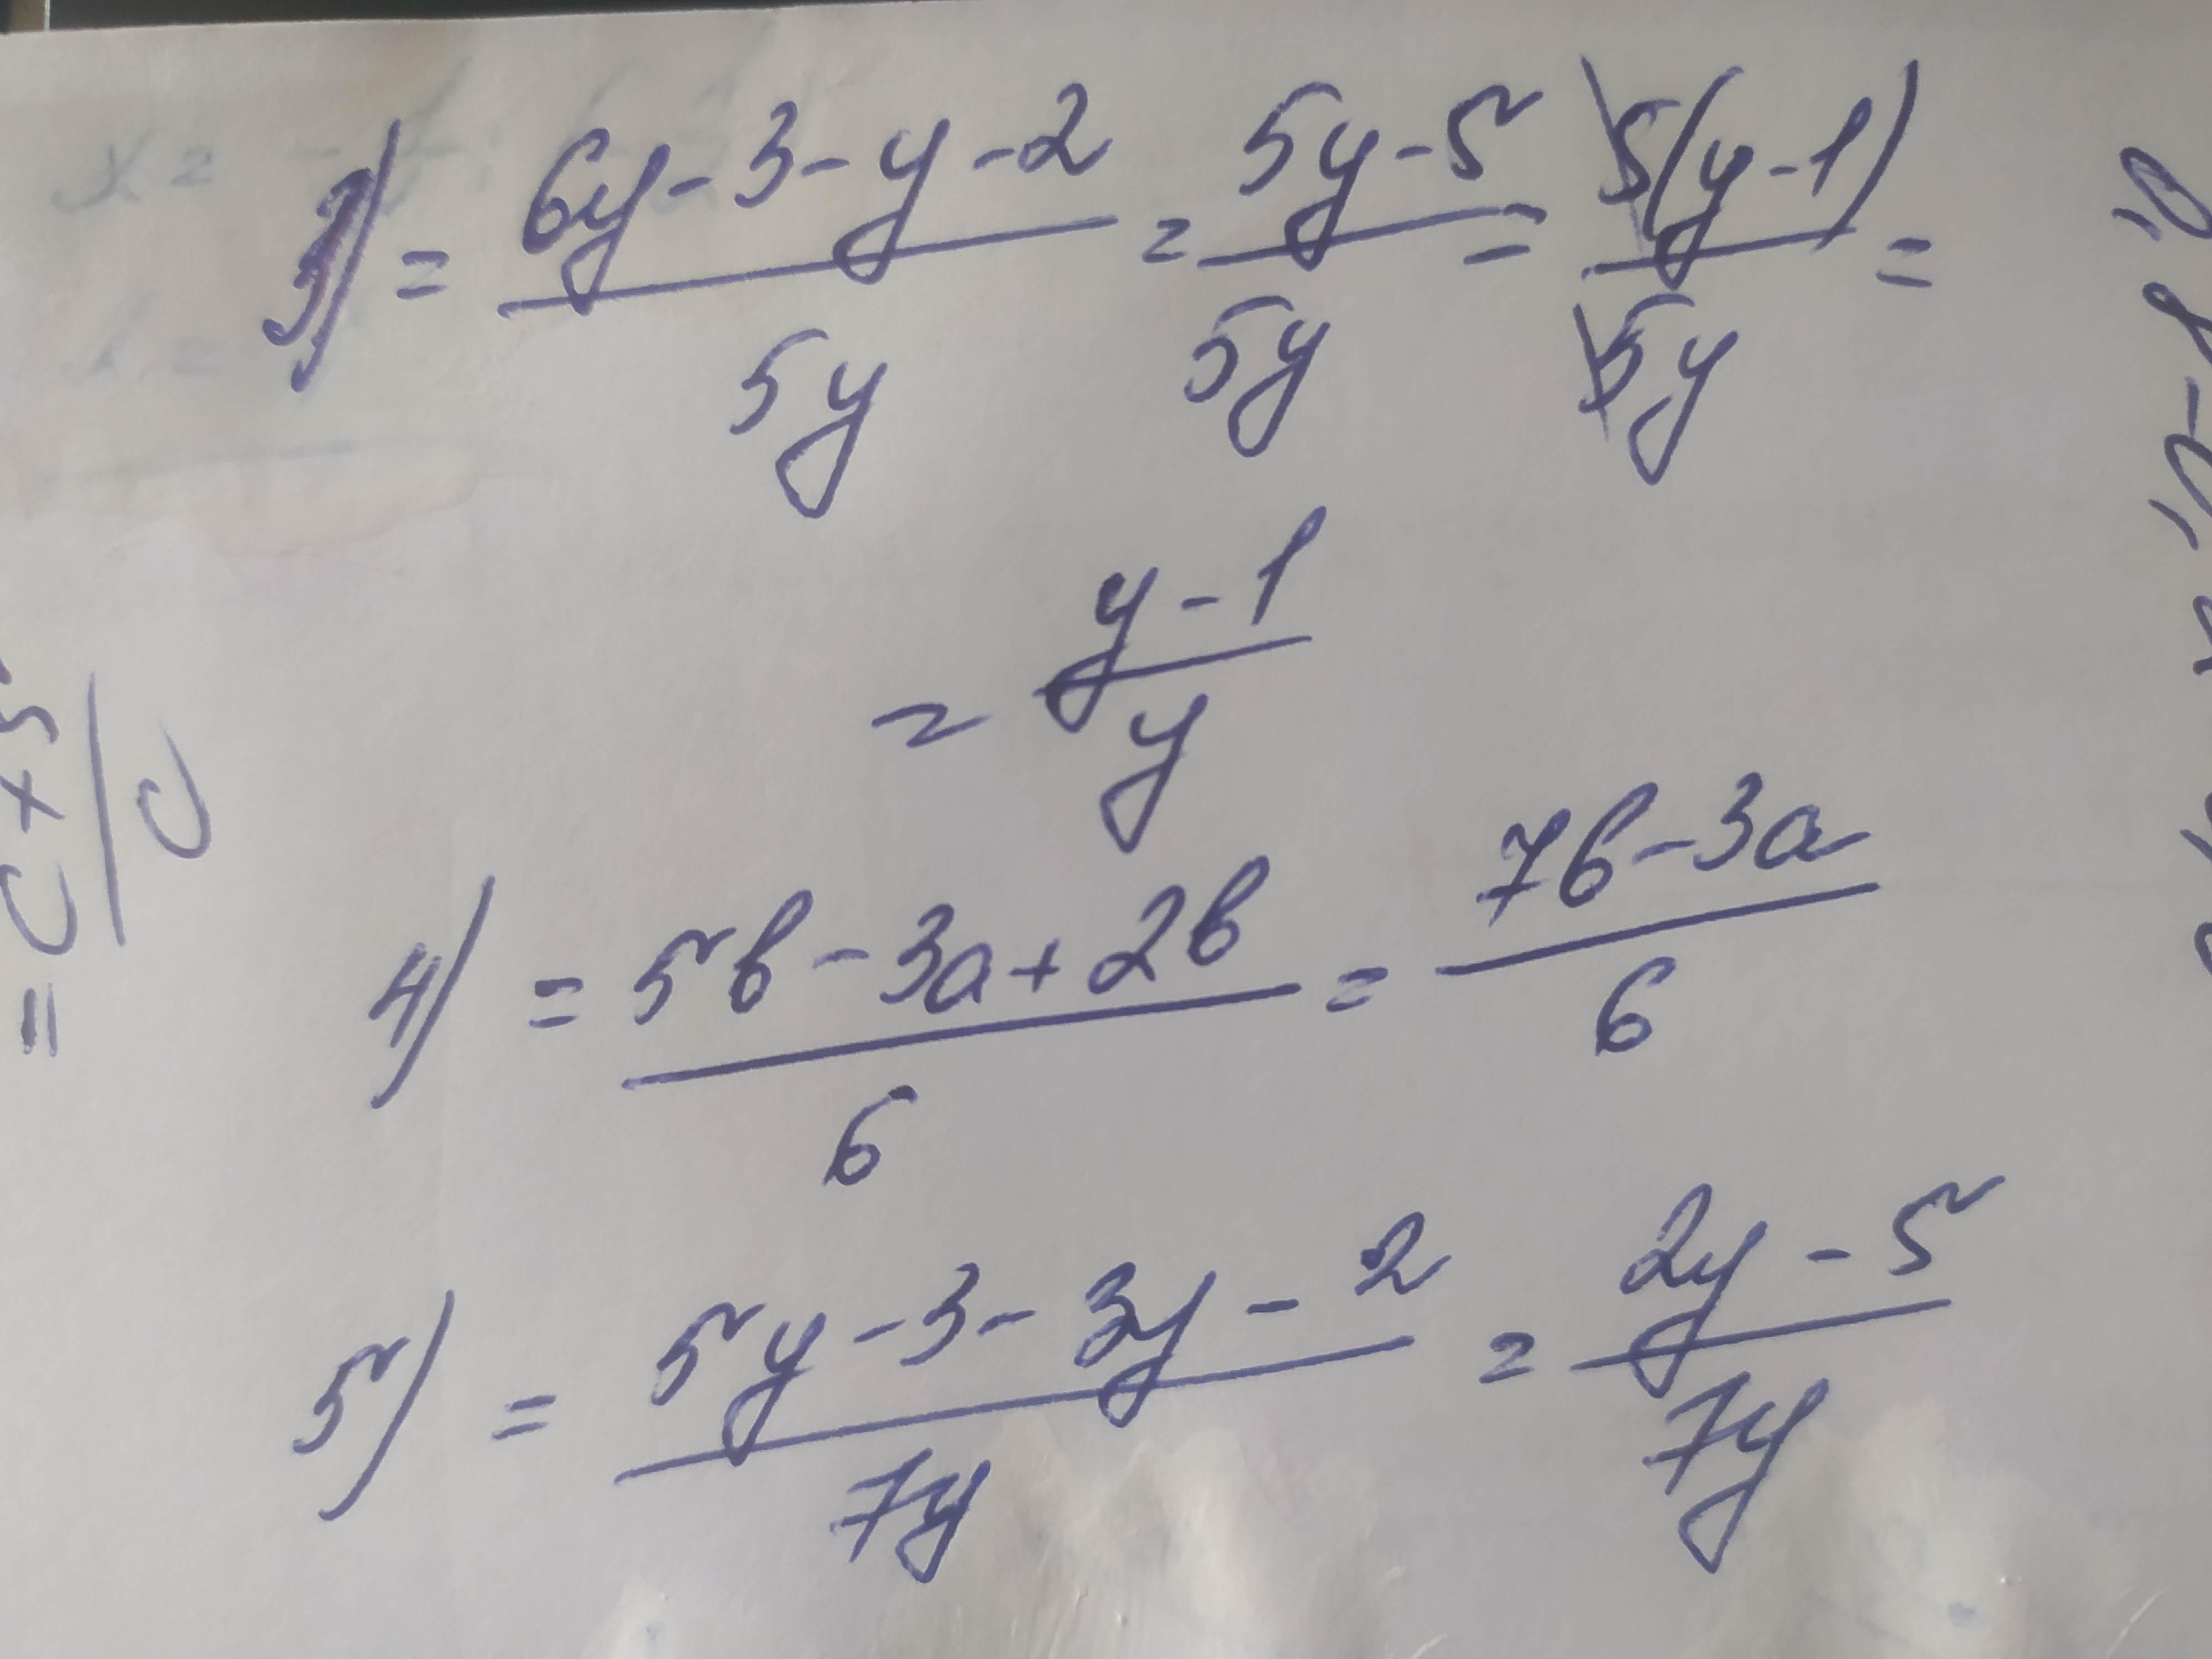 3) = (6y - 3 - y - 2)/(5y) = (5y - 5)/(5y) = (5(y - 1))/(5y) =
= (y - 1)/y
4) = (5b - 3a + 2b)/6 = (7b - 3a)/6
5) = (5y - 3 - 3y - 2)/(7y) = (2y - 5)/(7y)